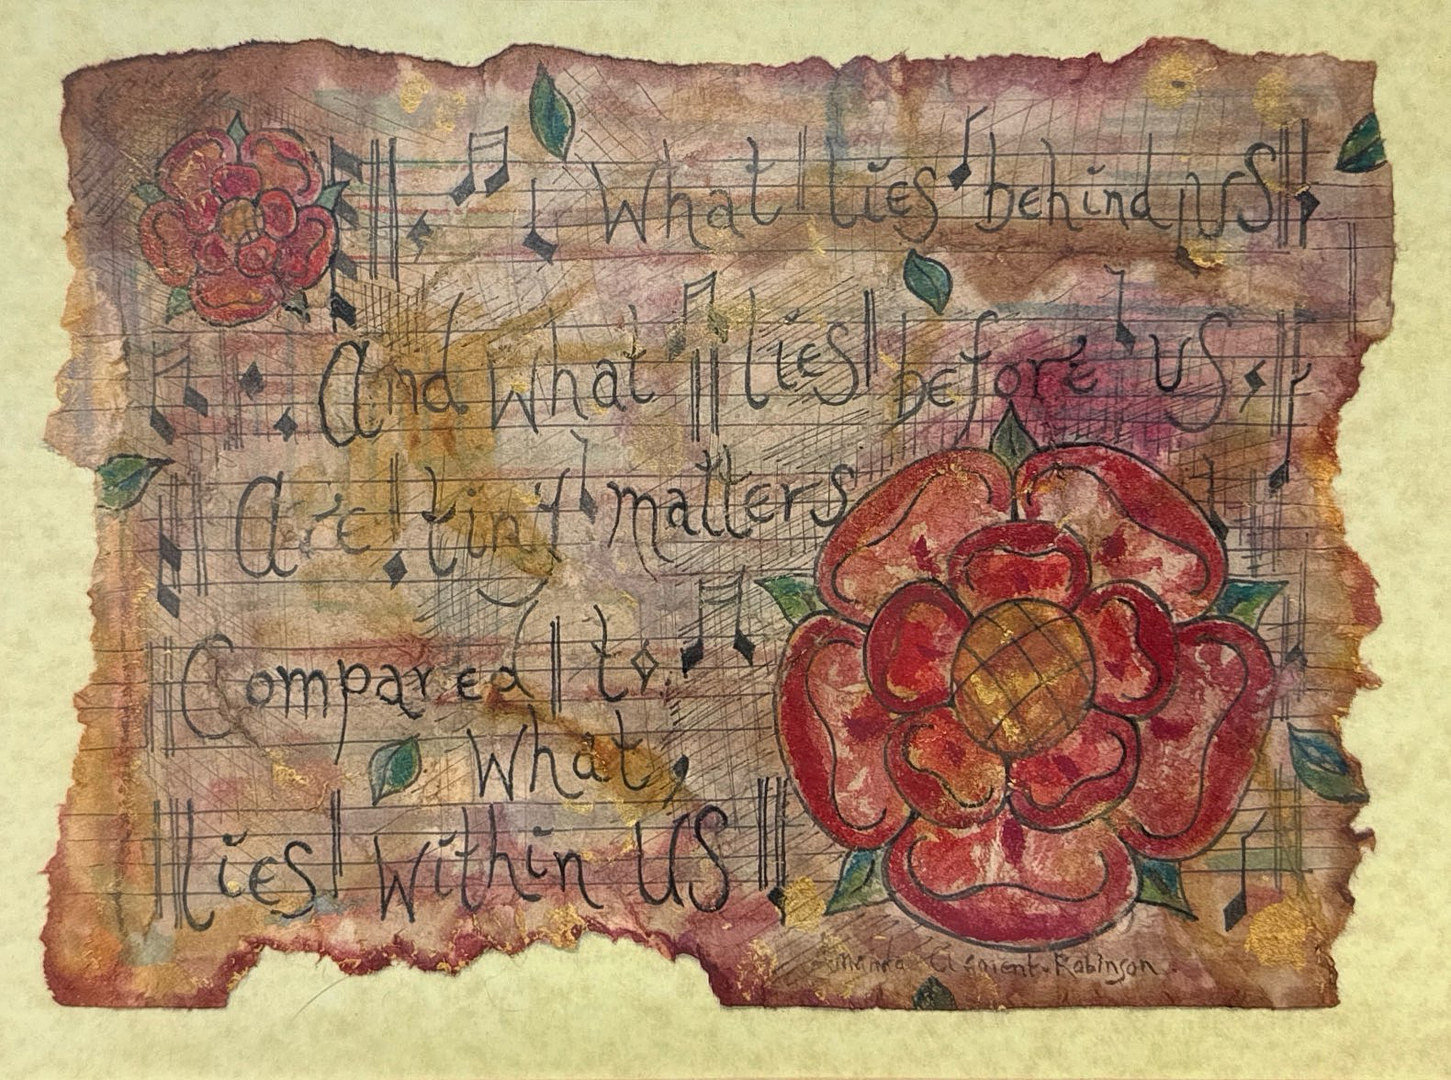 What lies behind us
And what lies before us
Are tiny matters
Compared to
what
lies within us
Robinson